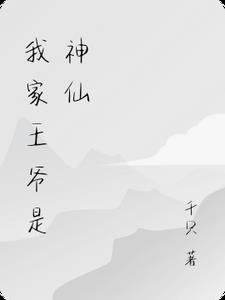 我家王爷是
神仙
千只 著